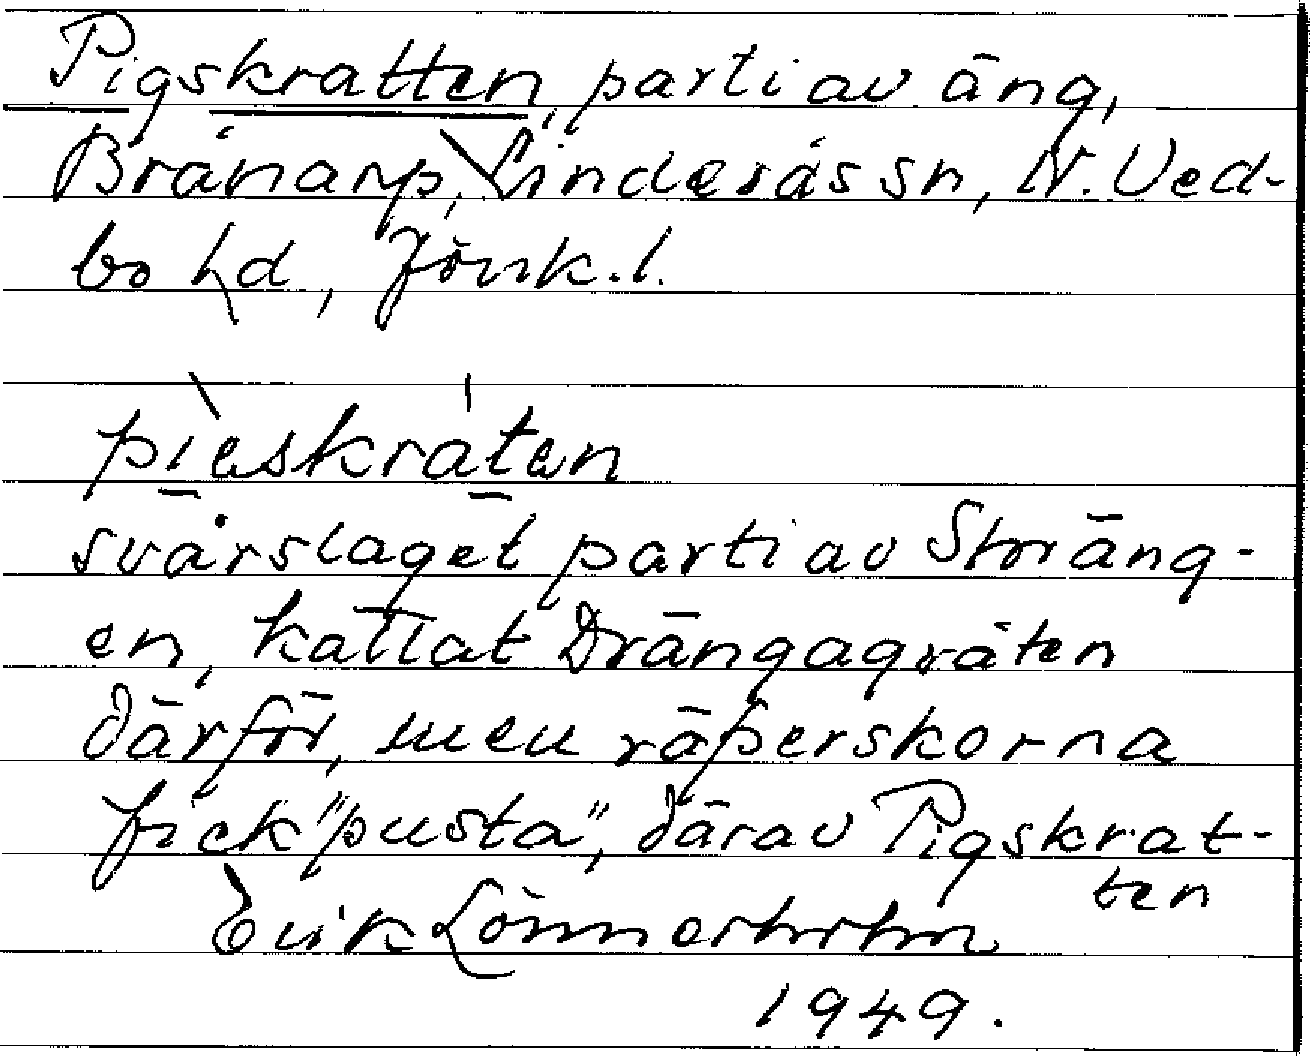 Pigskratten, parti av äng,
Brånarp, Linderås sn, N. Ved-
bo hd, Jönk. l.
pìeskráten
svårslaget parti av Storäng-
en, kallat Drängagråten
därför, men räfserskorna
fick "pusta", därav Pigskrat-
ten
Erik Lönnerholm
1949.